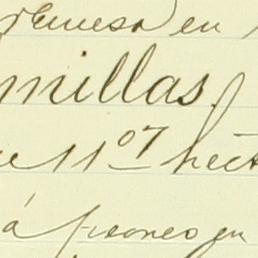 remesa en
millas
11 07 hect
á peones en